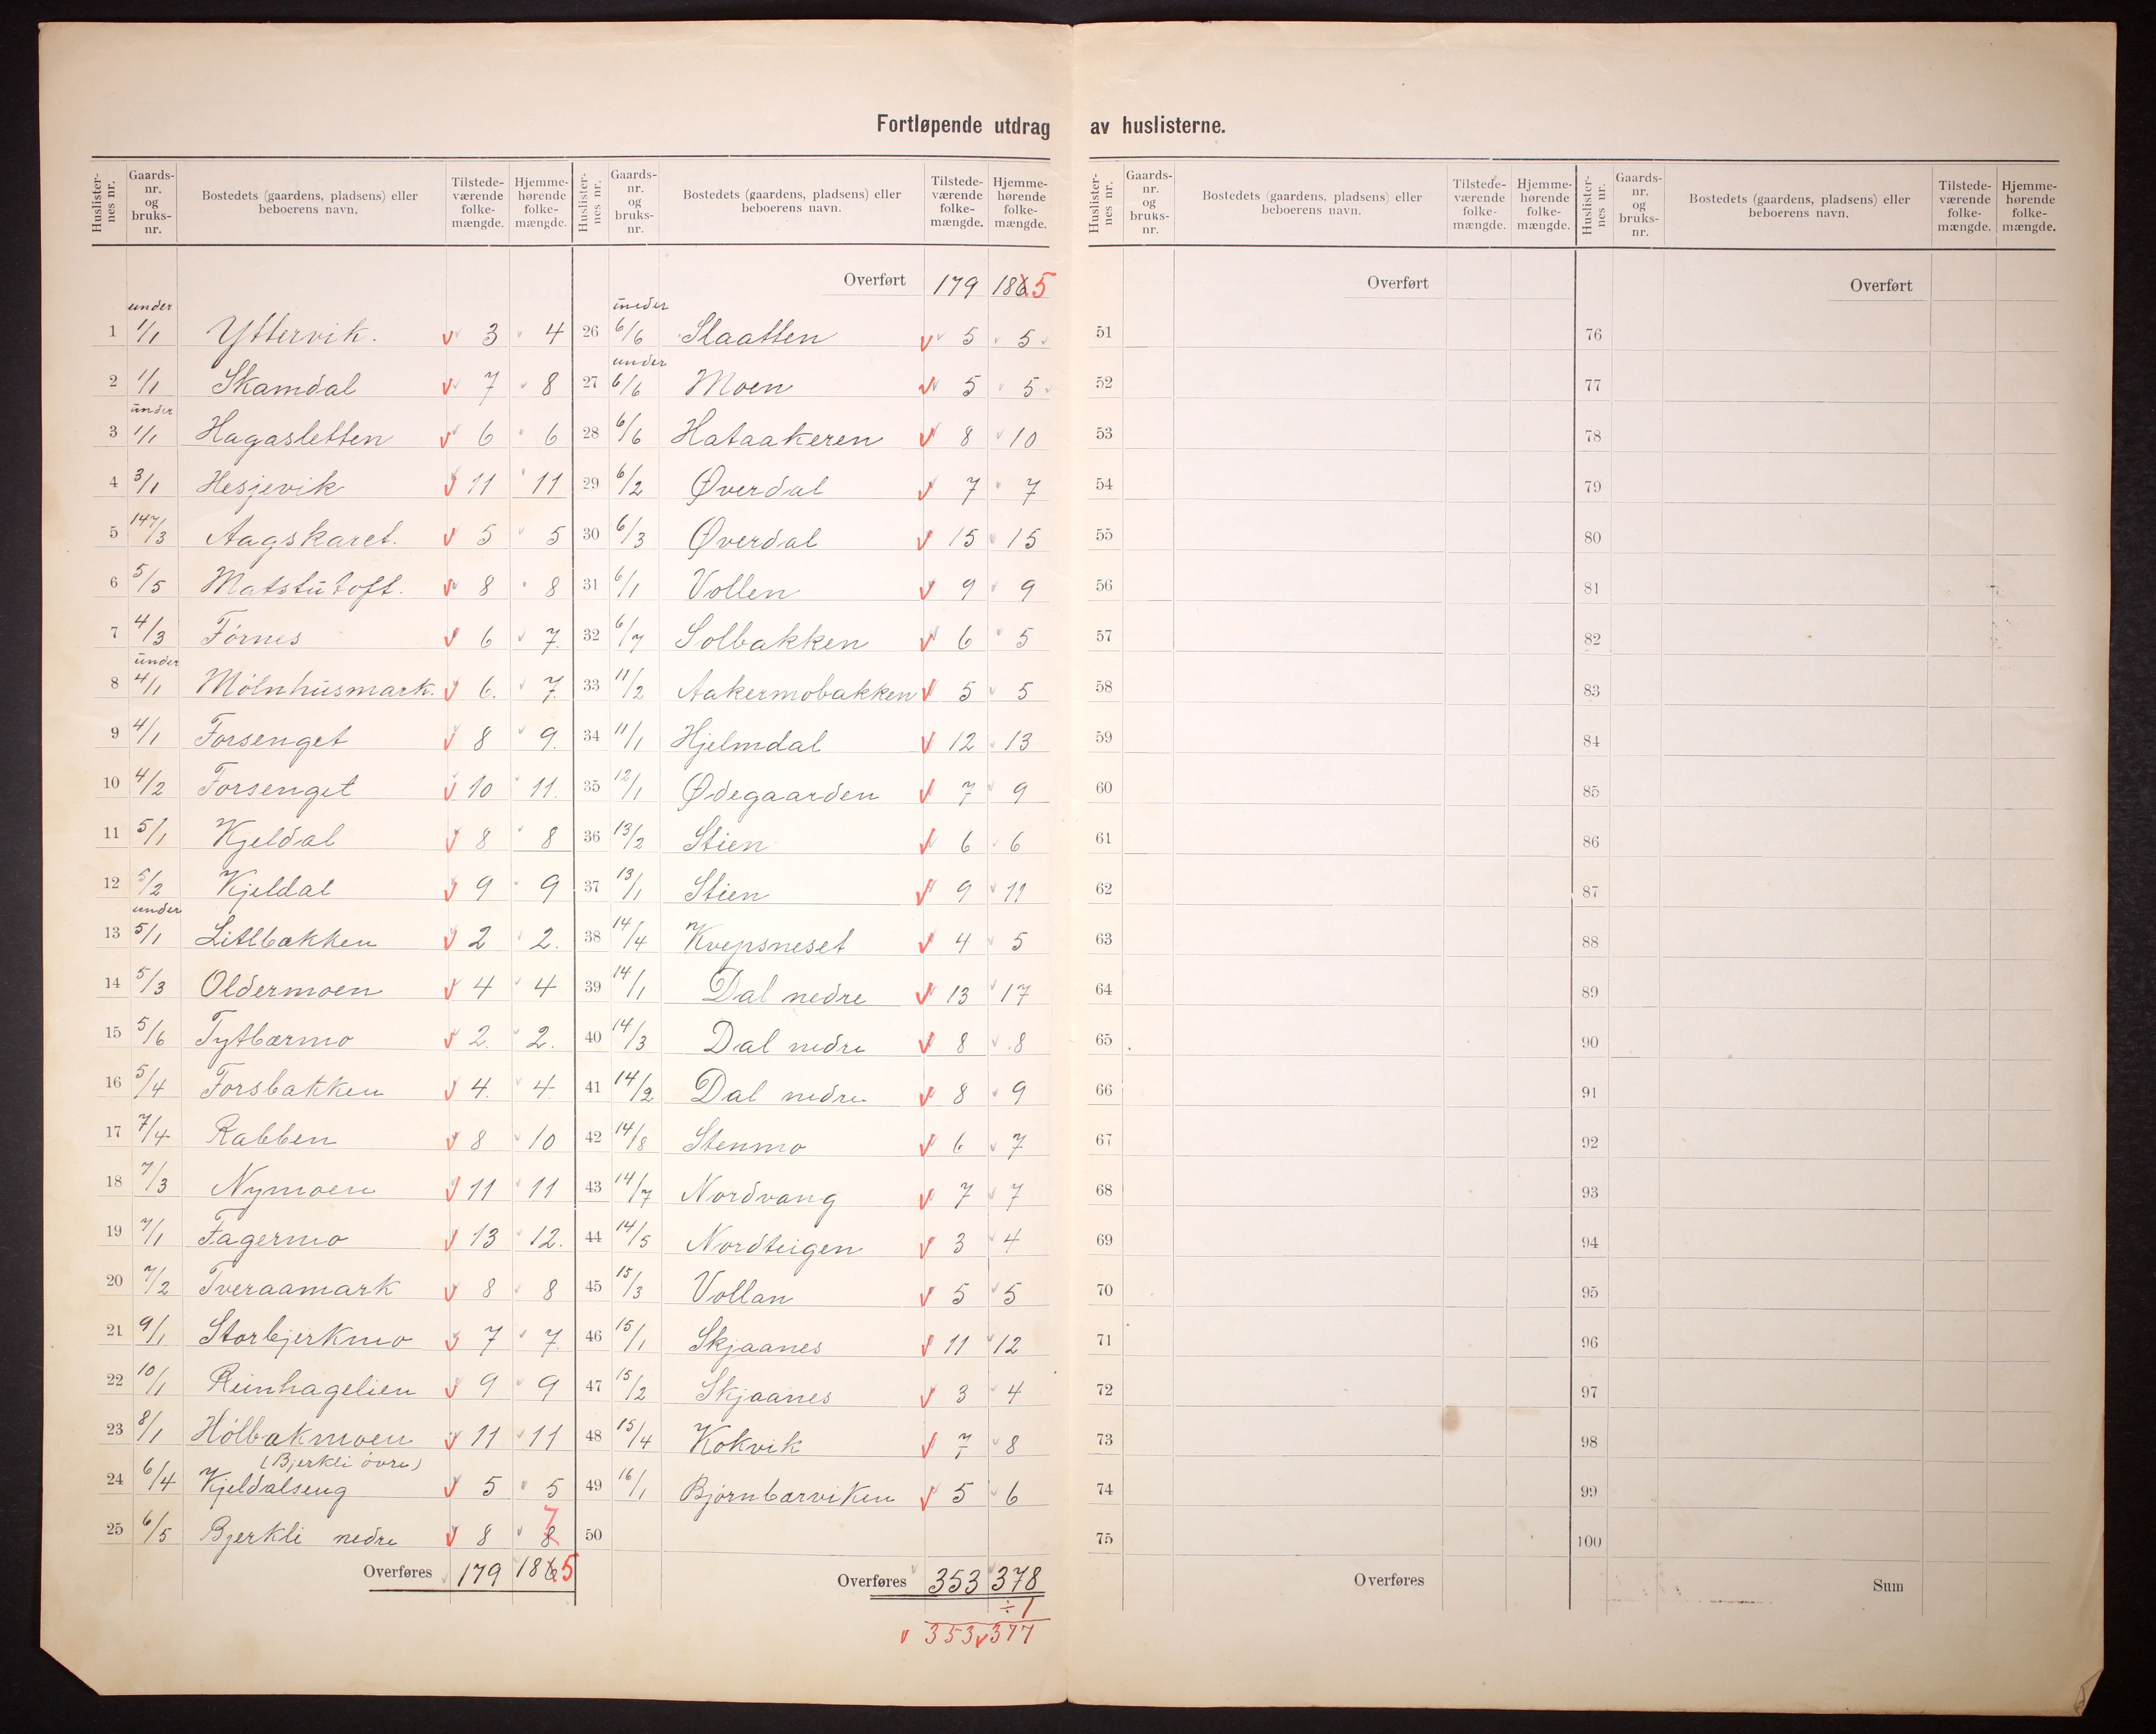 Fortløpende utdrag av huslisterne.
Huslister-nes nr. Gaards-nr. og bruks-nr. Bostedets (gaardens, pladsens) eller beboerens navn. Tilstede-værende folke-mængde. Hjemme-hørende folke-mængde.
under
1 1/1 Yttervik. 3 4
2 1/1 Skamdal 7 8
under
3 1/1 Hagasletten 6 6
4 3/1 Hesjevik 11 11
5 147/3 Aagskaret. 5 5
6 5/5 Matstutoft. 8 8
7 4/3 Fornes 6 7.
under
8 4/1 Mölnhusmark. 6. 7.
9 4/1 Forsenget 8 9.
10 4/2 Forsenget 10 11.
11 5/1 Kjeldal 8 8
12 5/2 Kjeldal 9 9
under
13 5/1 Litlbakken 2 2.
14 5/3 Oldermoen 4 4
15 5/6 Tytbærmo 2. 2.
16 5/4 Forsbakken 4. 4.
17 7/4 Rabben 8 10
18 7/3 Nymoen 11 11
19 7/1 Fagermo 13 12.
20 7/2 Tveraamark 8 8
21 9/1 Storbjerkmo 7 7.
22 10/1 Reinhagelien 9 9
23 8/1 Hölbakmoen 11 11
(Bjerkli övre)
24 6/4 Kjeldalseng 5 5
7
25 6/5 Bjerkli nedre 8 8
Overføres 179 186 5
Huslister-nes nr. Gaards-nr. og bruks-nr. Bostedets (gaardens, pladsens) eller beboerens navn. Tilstede-værende folke-mængde. Hjemme-hørende folke-mængde.
Overført 179 186 5
under
26 6/6 Slaatten 5 5
under
27 6/6 Moen 5 5
28 6/6 Hataakeren 8 10
29 6/2 Øverdal 7 7
30 6/3 Øverdal 15 15
31 6/1 Vollen 9 9
32 6/7 Solbakken 6 5
33 11/2 Aakermobakken 5 5
34 11/1 Hjelmdal 12 13
35 12/1 Ødegaarden 7 9
36 13/2 Stien 6 6
37 13/1 Stien 9 11
38 14/4 Kvepsneset 4 5
39 14/1 Dal nedre 13 17
40 14/3 Dal nedre 8 8
41 14/2 Dal nedre 8 9
42 14/8 Stenmo 6 7
43 14/7 Nordvang 7 7
44 14/5 Nordteigen 3 4
45 15/3 Vollan 5 5
46 15/1 Skjaanes 11 12
47 15/2 Skjaanes 3 4
48 15/4 Kokvik 7 8
49 16/1 Bjørnbærviken 5 6
50
Overføres 353 378
÷1
353 377
Huslister-nes nr. Gaards-nr. og bruks-nr. Bostedets (gaardens, pladsens) eller beboerens navn. Tilstede-værende folke-mængde. Hjemme-hørende folke-mængde.
Overført
51
52
53
54
55
56
57
58
59
60
61
62
63
64
65
66
67
68
69
70
71
72
73
74
75
Overføres
Huslister-nes nr. Gaards-nr. og bruks-nr. Bostedets (gaardens, pladsens) eller beboerens navn. Tilstede-værende folke-mængde. Hjemme-hørende folke-mængde.
Overført
76
77
78
79
80
81
82
83
84
85
86
87
88
89
90
91
92
93
94
95
96
97
98
99
100
Sum